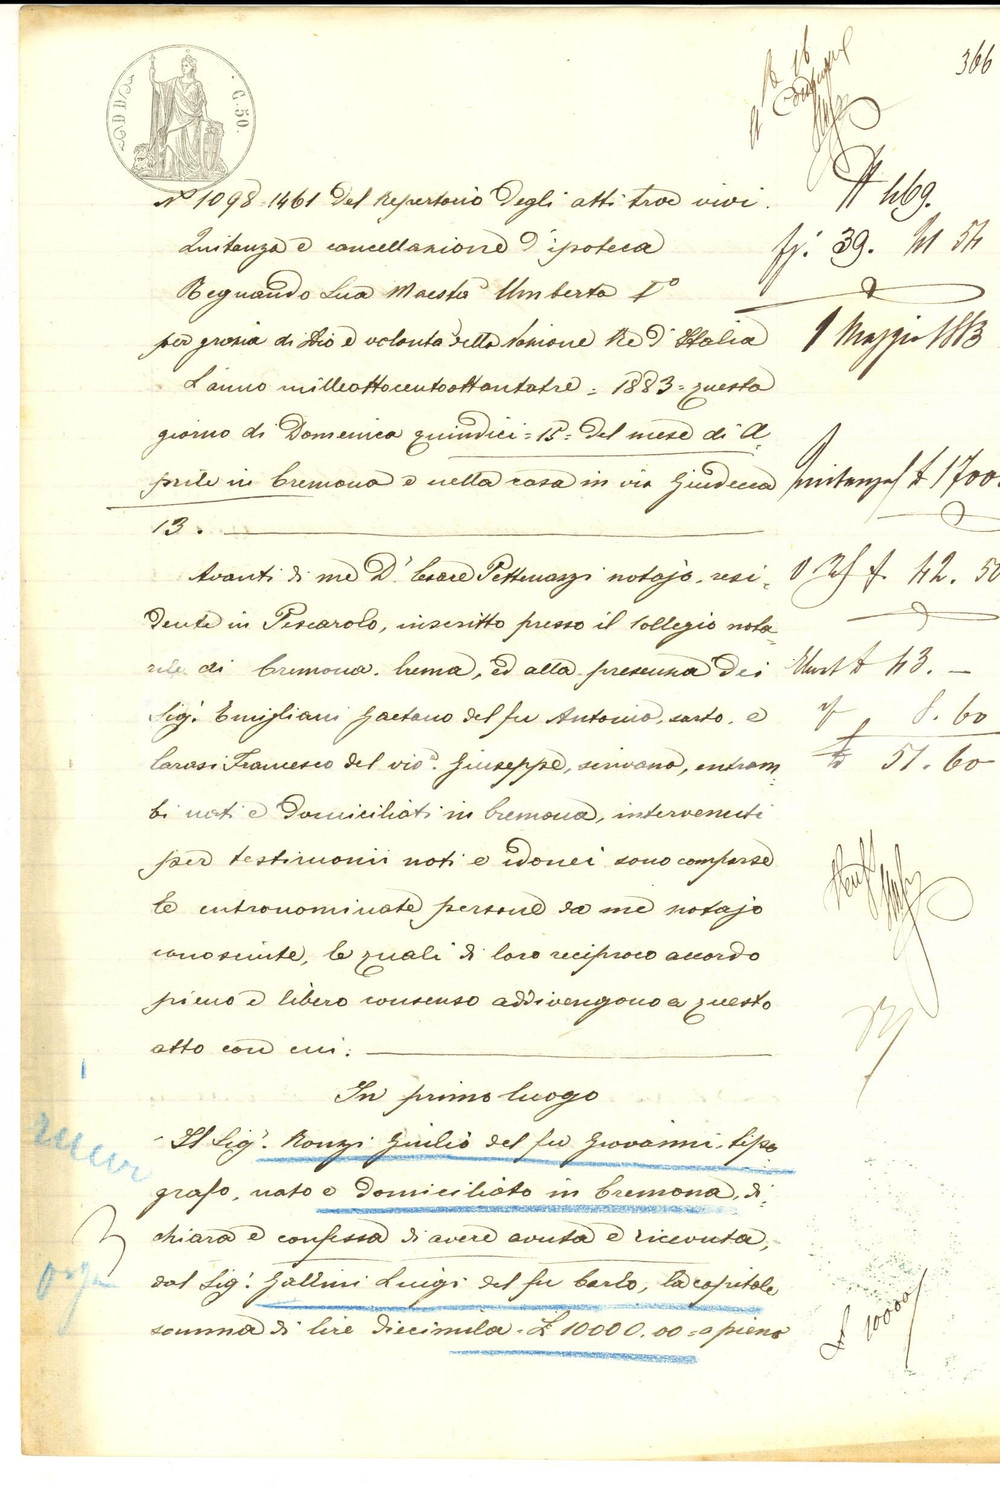 366
C. 50.
N° 1098-1461 del Repertorio degli atti tra vivi.
Quitanza e cancellazione d'ipoteca
Regnando Sua Maestà Umberto I°
per grazia di Dio e volontà della Nazione Re d'Italia
L'anno milleottocentoottantatre = 1883 = questo
giorno di Domenica quindici = 15 = del mese di A=
prile in Cremona e nella casa in via Giudecca
13.
Avanti di me Dr. Cesare Pettenazzi notajo, resi=
dente in Pescarolo, inscritto presso il Collegio nota=
rile di Cremona. Crema, ed alla presenza dei
Sigi. Emigliani Gaetano del fu Antonio, sarto, e
Carasi Francesco del vivo. Giuseppe, scrivano, entram=
bi nati e domiciliati in Cremona, intervenuti
per testimonii noti e idonei sono comparse
le entronominate persone da me notajo
conosciute, le quali di loro reciproco accordo
pieno e libero consenso addivengono a questo
atto con cui:
In primo luogo
Il Sigr. Ronzi Giulio del fu Giovanni, tipo
grafo, nato e domiciliato in Cremona, di=
chiara e confessa di avere avuta e ricevuta,
dal Sigr. Gallini Luigi del fu Carlo, la capitale
somma di lire diecimila. £ 10000.00 = a pieno
469.
39. 54
1 Maggio 1883
Quitanza £ 1700.
42. 50
43. —
8. 60
51. 60
£ 10000